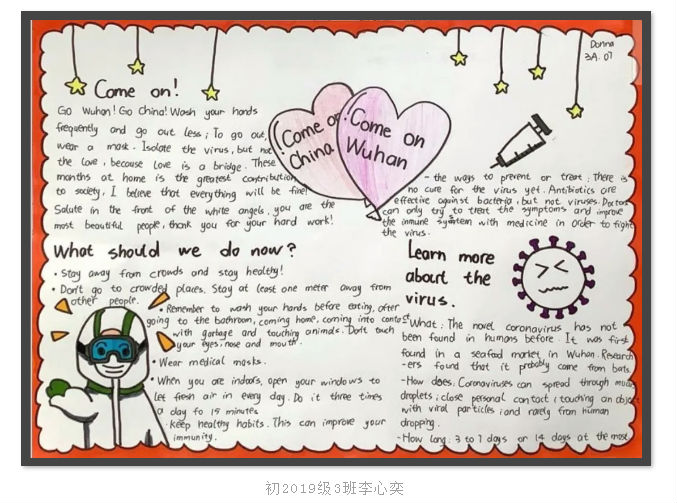 Donna
3A. 07
Come on!
Go Wuhan! Go China! Wash your hands
frequently and go out less; To go out,
wear a mask. Isolate the virus, but not
the love, because love is a bridge. These
months at home is the greatest contribution
to society, I believe that everything will be fine!
Salute in the front of the white angels, you are the
most beautiful people, thank you for your hard work!
Come on
China
Come on
Wuhan
- the ways to prevent or treat: there is
no cure for the virus yet. Antibiotics are
effective against bacteria, but not viruses. Doctors
can only try to treat the symptoms and improve
the inmune system with medicine in order to fight
the virus.
What should we do now?
• Stay away from crowds and stay healthy!
• Don't go to crowded places. Stay at least one meter away from
other people.
• Remember to wash your hands before eating, after
going to the bathroom, coming home, coming into contact
with garbage and touching animals. Don't touch
your eyes, nose and mouth.
• Wear medical masks.
• When you are indoors, open your windows to
let fresh air in every day. Do it three times
a day fo 15 minutes
keep healthy habits. This can improve your
immunity.
Learn more
about the
virus.
- What: The novel coronavirus has not
been found in humans before. It was first
found in a seafood market in Wuhan. Research
-ers found that it probably came from bats.
- How does: Coronaviruses can spread through
droplets; close personal contact; touching an object
with viral particles; and rarely from human
dropping.
- How long: 3 to 7 days or 14 days at the most
初2019级3班李心奕